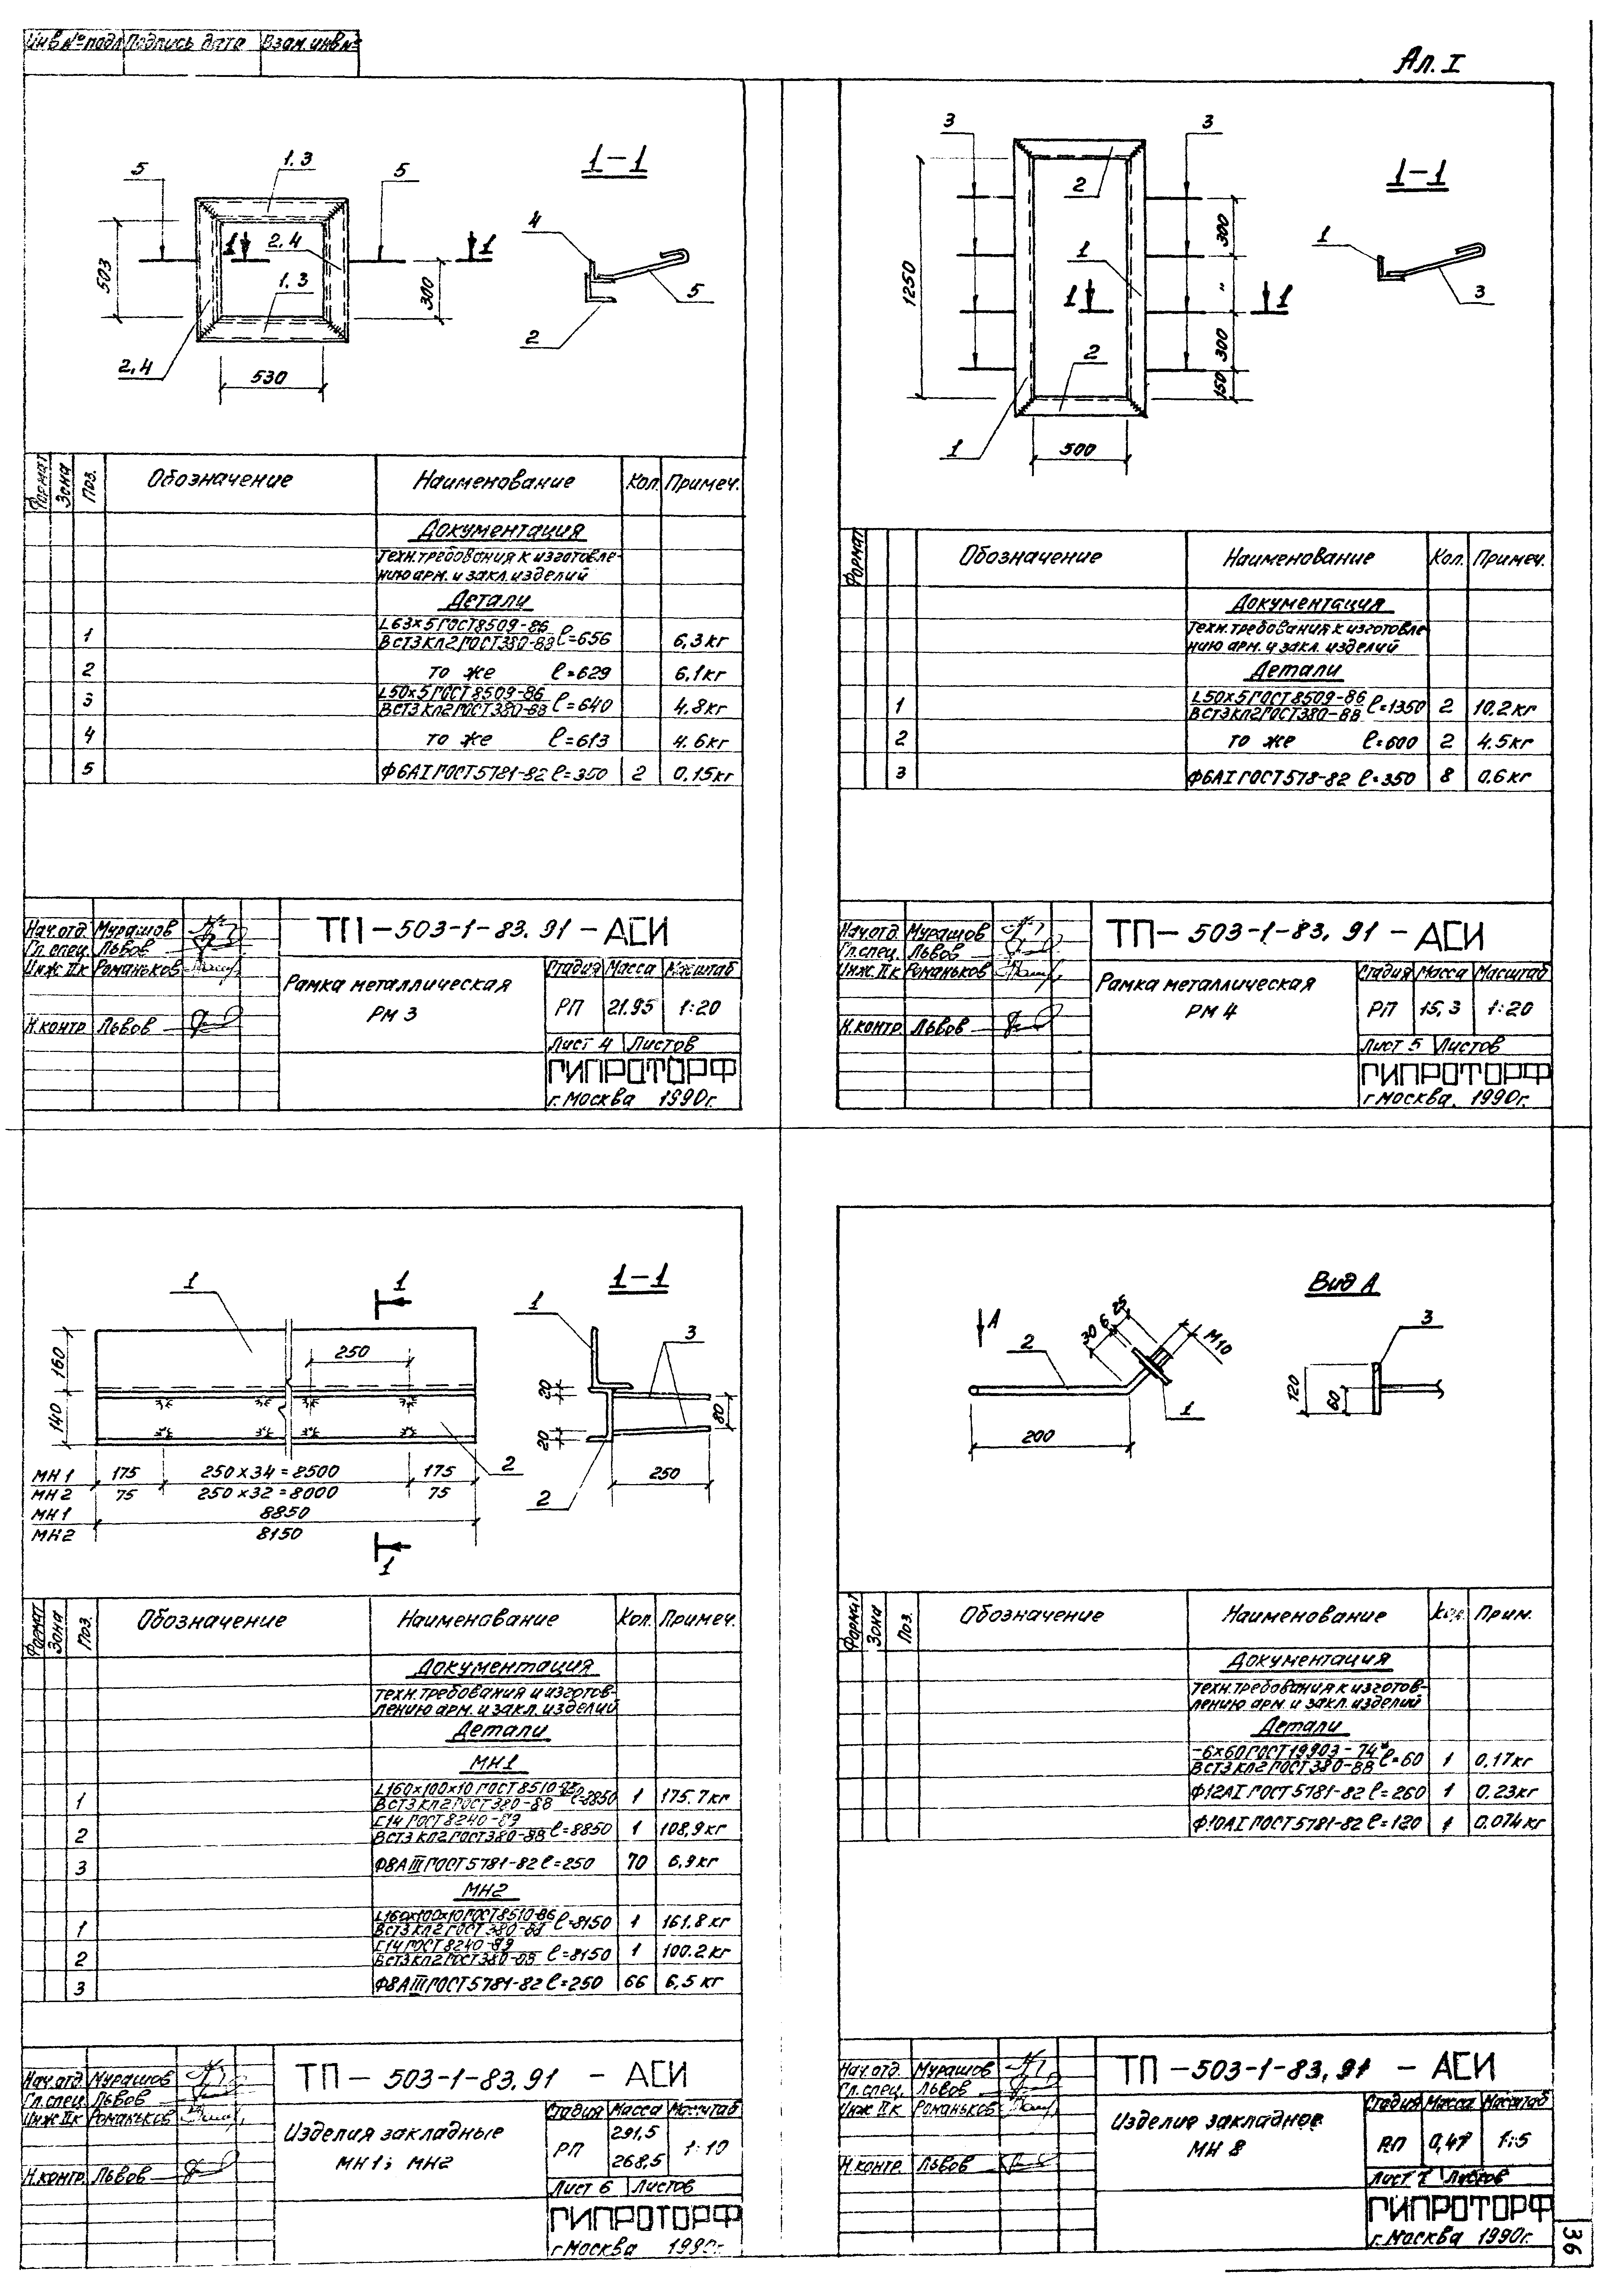 Инв№подл Подпись дата Взам.инв№
Ал. I
1.3
5
5
1-1
1
1
2,4
1.3
503
300
2,4
530
4
5
2
Формат Зона Поз. Обозначение Наименование Кол. Примеч.
Документация
Техн.требования к изготовле-
нию арм. и закл. изделий
Детали
1 L63×5 ГОСТ 8509-86
ВСт3кл2 ГОСТ 380-88 ℓ=656 6,3кг
2 то же ℓ=629 6,1кг
3 L50×5 ГОСТ 8509-86
ВСт3кл2 ГОСТ 380-88 ℓ=640 4.8кг
4 то же ℓ=613 4.6кг
5 Ф6АI ГОСТ 5781-82 ℓ=350 2 0.15кг
Нач.отд. Мурашов
Гл.спец. Львов
Инж.IIк Романьков
Н.контр. Львов
ТП-503-1-83.91-АСИ
Рамка металлическая
РМ 3
Стадия Масса Масштаб
РП 21.95 1:20
Лист 4 Листов
ГИПРОТОРФ
г.Москва 1990г.
3
3
1-1
2
1250
1
1
1
300
"
300
150
2
1
500
1
3
Формат Обозначение Наименование Кол. Примеч.
Документация
Техн.требования к изготовле
нию арм. и закл. изделий
Детали
1 L50×5 ГОСТ 8509-86
ВСт3кл2 ГОСТ 380-88 ℓ=1350 2 10.2кг
2 то же ℓ=600 2 4.5кг
3 Ф6АI ГОСТ 578-82 ℓ=350 8 0.6кг
Нач.отд. Мурашов
Гл.спец. Львов
Инж.IIк Романьков
Н.контр. Львов
ТП-503-1-83.91-АСИ
Рамка металлическая
РМ 4
Стадия Масса Масштаб
РП 15,3 1:20
Лист 5 Листов
ГИПРОТОРФ
г.Москва. 1990г.
1
1
1-1
160
140
250
2
МН1 175 250×34=8500 175
МН2 75 250×32=8000 75
МН1 8850
МН2 8150
1
1
3
20
20
80
250
2
Формат Зона Поз. Обозначение Наименование Кол. Примеч.
Документация
техн.требования и изготов-
лению арм. и закл. изделий
Детали
МН1
1 L160×100×10 ГОСТ 8510-86
ВСт3кл2 ГОСТ 380-88 ℓ=8850 1 175.7кг
2 [14 ГОСТ 8240-89
ВСт3кл2 ГОСТ 380-88 ℓ=8850 1 108,9кг
3 Ф8АIII ГОСТ 5781-82 ℓ=250 70 6,9кг
МН2
1 L160×100×10 ГОСТ 8510-86
ВСт3кл2 ГОСТ 380-88 ℓ=8150 1 161.8кг
2 [14 ГОСТ 8240-89
ВСт3кл2 ГОСТ 380-88 ℓ=8150 1 100.2кг
3 Ф8АIII ГОСТ 5781-82 ℓ=250 66 6,5кг
Нач.отд. Мурашов
Гл.спец. Львов
Инж IIк Романьков
Н.контр. Львов
ТП-503-1-83.91 - АСИ
Изделия закладные
МН1; МН2
Стадия Масса Масштаб
РП 291,5 268,5 1:10
Лист 6 Листов
ГИПРОТОРФ
г Москва 1990г.
Вид А
А
2
30
6
25
М10
1
200
3
120
60
Формат Зона Поз. Обозначение Наименование Кол. Прим.
Документация
техн.требования к изготов-
лению арм. и закл. изделий
Детали
-6×60 ГОСТ 19903-74*
ВСт3кл2 ГОСТ 380-88 ℓ=60 1 0,17кг
Ф12АI ГОСТ 5781-82 ℓ=260 1 0.23кг
Ф10АI ГОСТ 5781-82 ℓ=120 1 0.074кг
Нач.отд. Мурашов
Гл.спец. Львов
Инж IIк Романьков
Н.контр. Львов
ТП-503-1-83.91 - АСИ
Изделие закладное
МН 8
Стадия Масса Масштаб
РП 0,47 1:5
Лист 7 Листов
ГИПРОТОРФ
г.Москва 1990г.
36